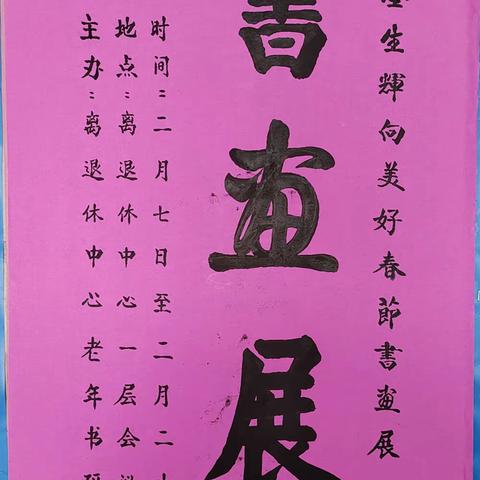 生輝向美好春節書畫展
書畫展
时间：二月七日至二月二
地点：离退休中心一层会
主办：离退休中心老年书